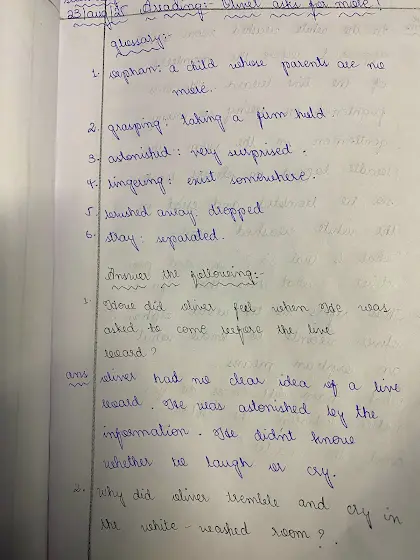 23/aug/25 Reading:- Oliver asks for more!
glossary:-
1. orphan: a child whose parents are no
more.
2. grasping: taking a firm hold.
3. astonished: very surprised.
4. lingering: exist somewhere.
5. brushed away: dropped
6. stray: separated.
Answer the following:-
1. How did oliver feel when He was
asked to come before the live
board?
ans oliver had no clear idea of a live
board. He was astonished by the
information. He didn't know
whether to laugh or cry.
2. why did oliver tremble and cry in
the white-washed room?